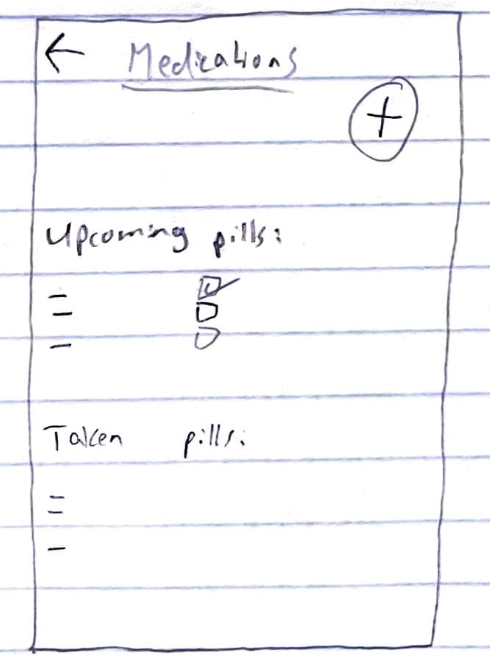 ← Medications
+
Upcoming pills:
Taken pills: